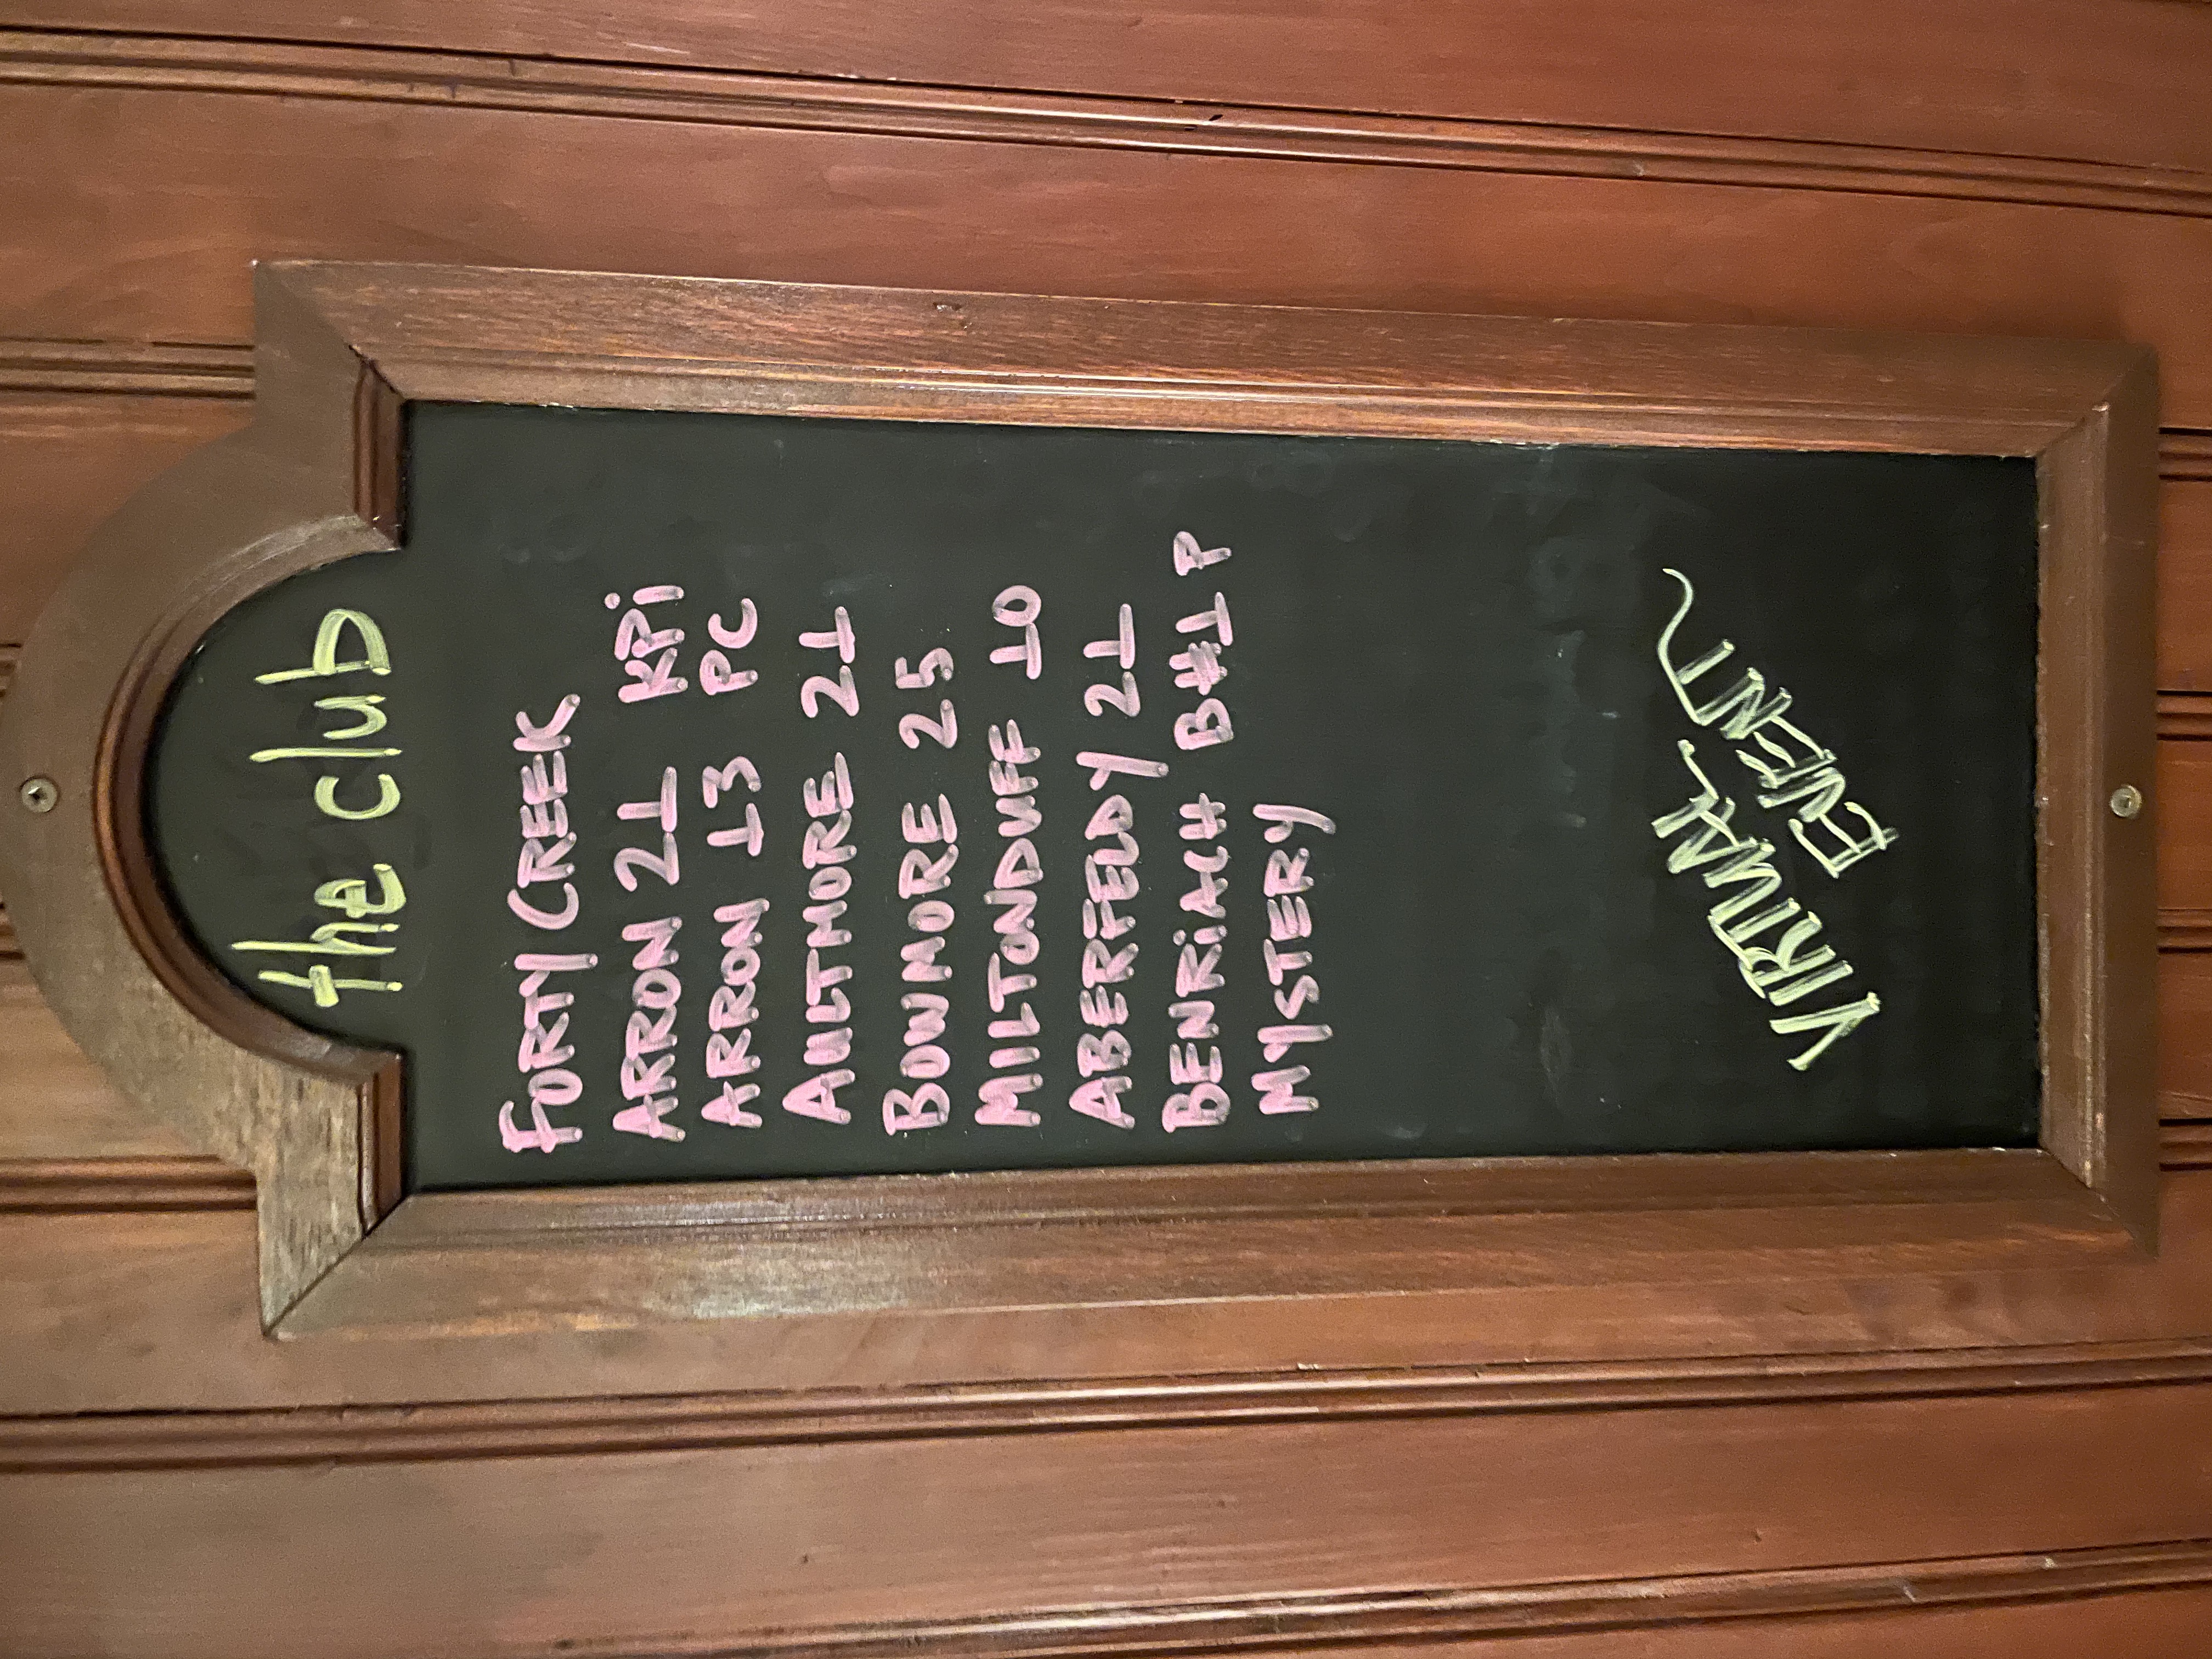 the club
FORTY CREEK
ARRON 21 KPi
ARRON 13 PC
AULTMORE 21
BOWMORE 25
MILTONDUFF 10
ABERFELDY 21
BENRiACH B#1 P
MYSTERY
VIRTUAL
EVENT